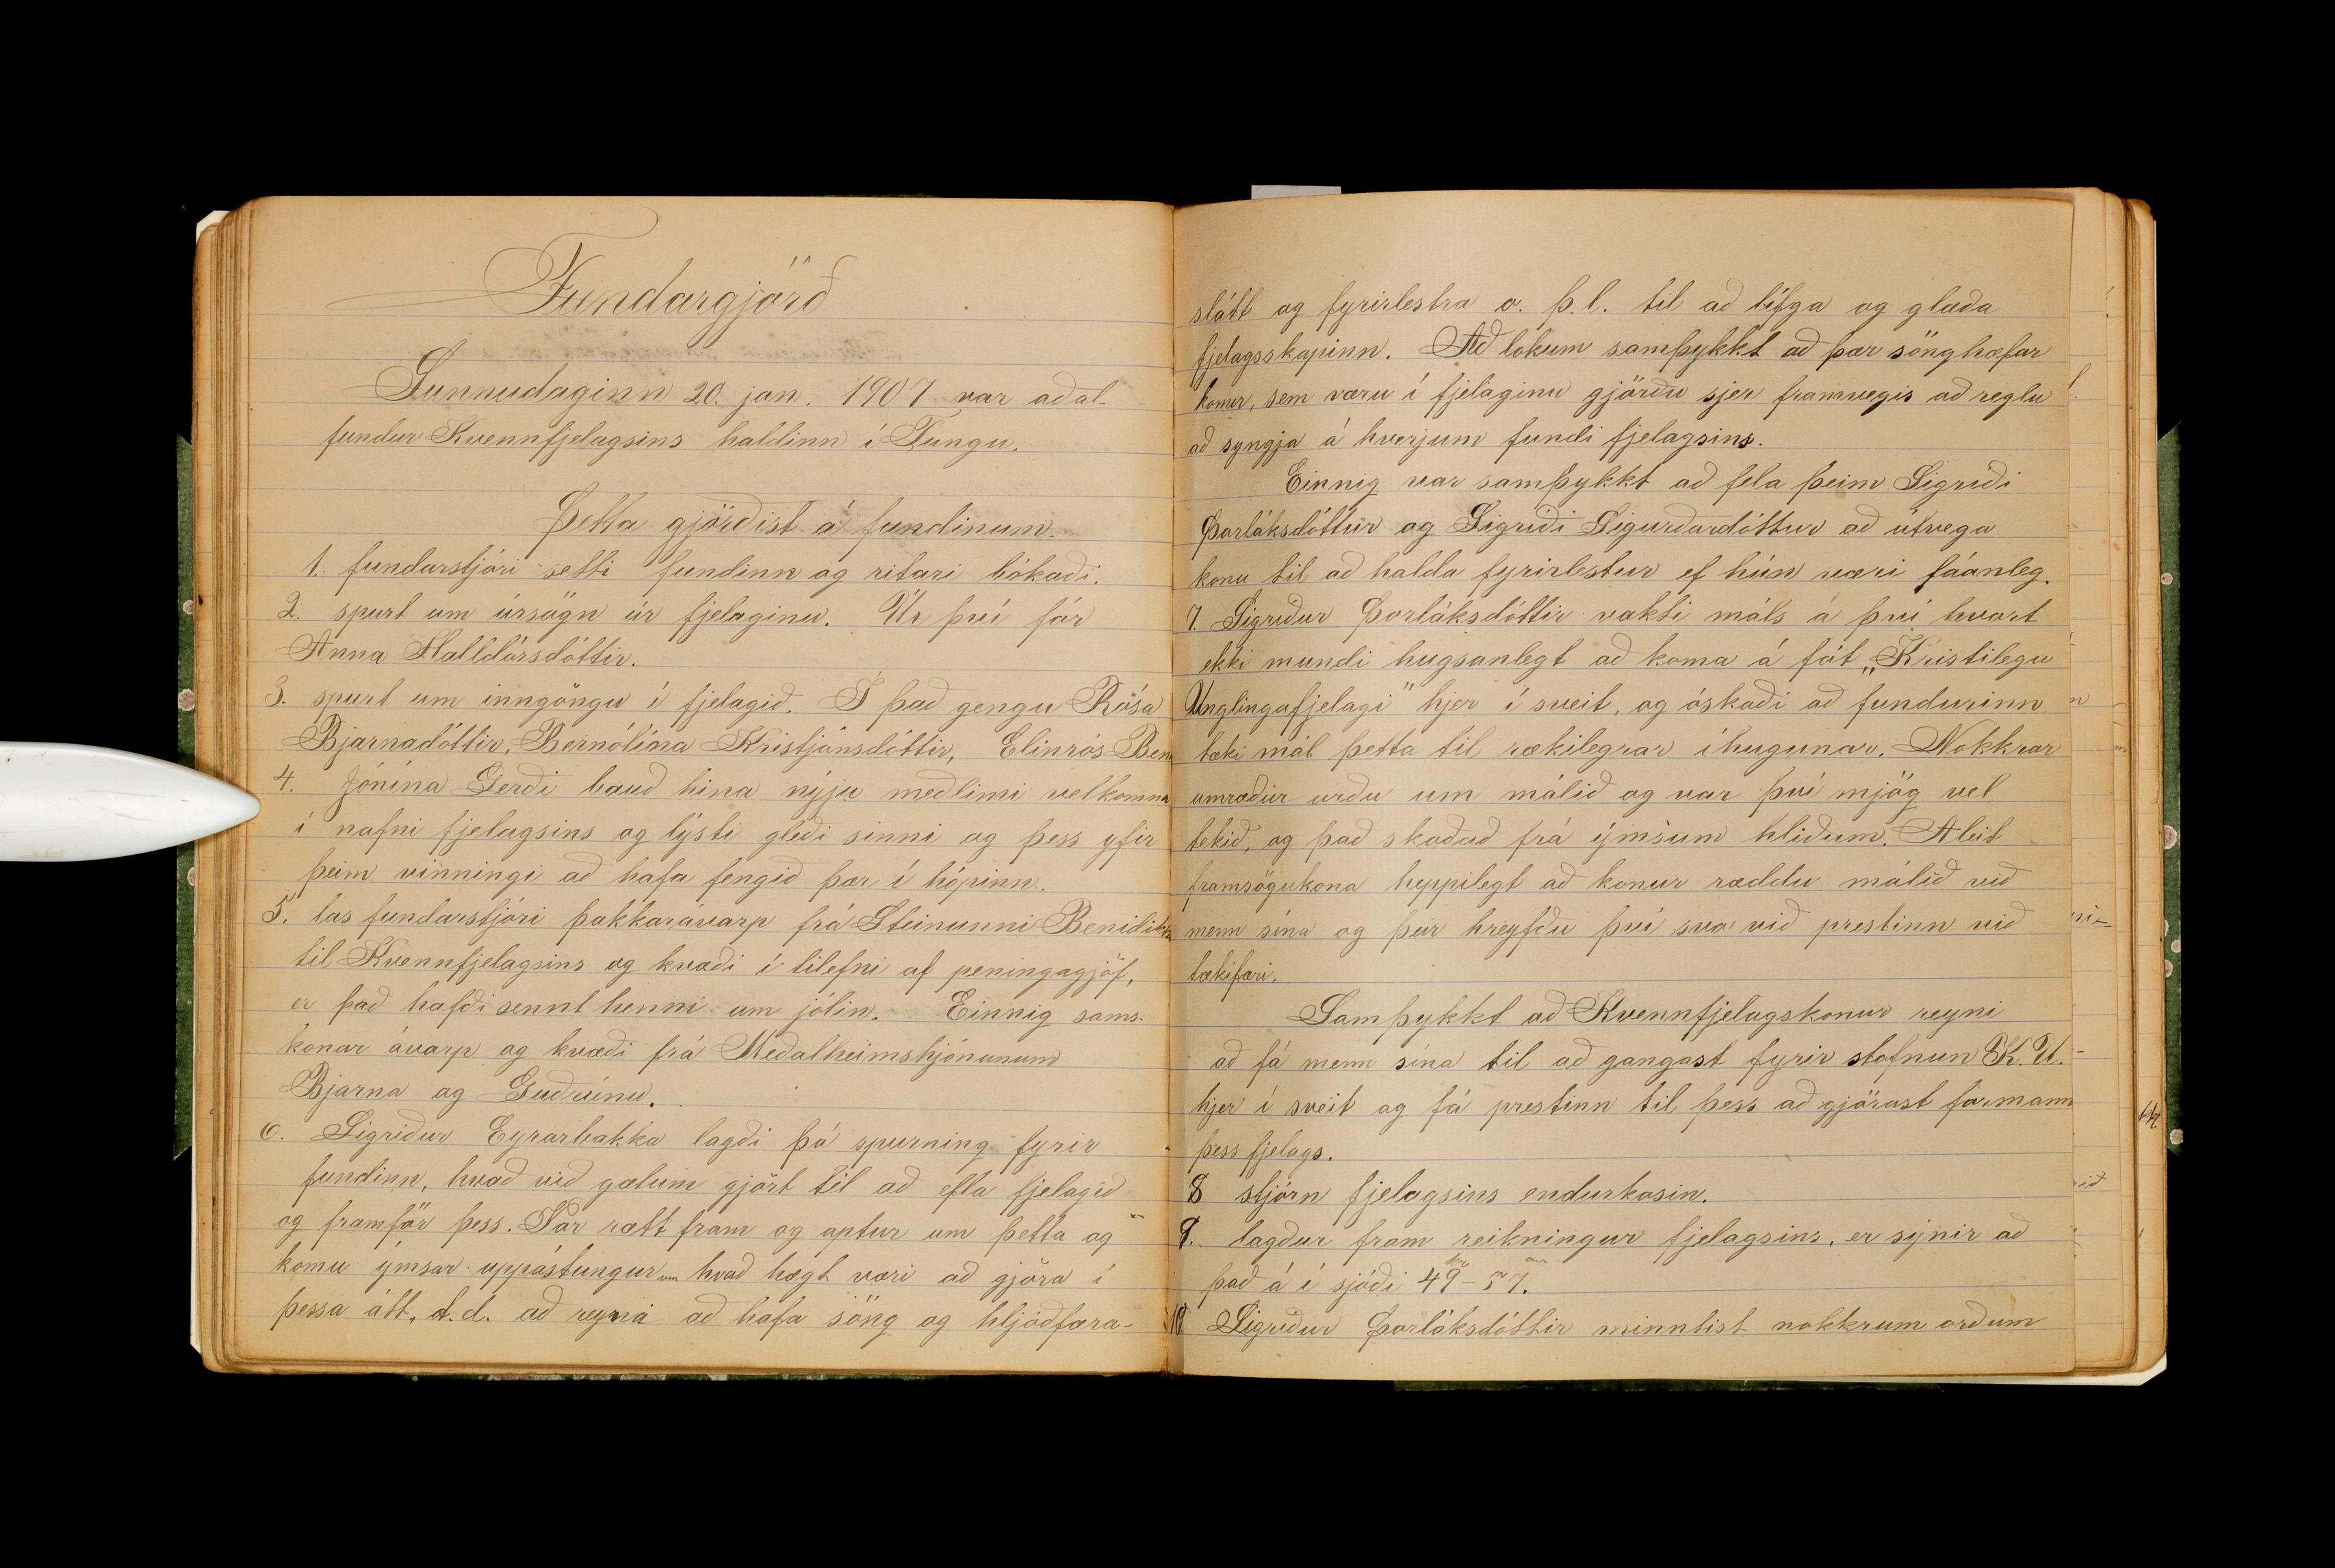 Fundargjörð
Sunnudaginn 20. jan. 1907 var aðal-
fundur Kvennfjelagsins haldinn í Tungu.
Þetta gjörðist á fundinum.
1. fundarstjóri setti fundinn og ritari bókaði.
2. spurt um úrsögn úr fjelaginu. Úr því fór
Anna Halldórsdóttir.
3. spurt um inngöngu í fjelagið. Í það gengu Rósa
Bjarnadóttir, Bernólína Kristjánsdóttir, Elinrós Ben
4. Jónína Gerði bauð hina nýju meðlimi velkomna
í nafni fjelagsins og lýsti gleði sinni og þess yfir
þeim vinningi að hafa fengið þær í hópinn.
5. las fundarstjóri þakkarávarp frá Steinunni Benidikts
til Kvennfjelagsins og kvæði í tilefni af peningagjöf,
er það hafði sennt henni um jólin. Einnig sams-
konar ávarp og kvæði frá Meðalheimshjónunum
Bjarna og Guðrúnu.
6. Sigríður Eyrarbakka lagði þá spurning fyrir
fundinn, hvað við gætum gjört til að efla fjelagið
og framför þess. Var rætt fram og aptur um þetta og
komu ýmsar uppástungur um hvað hægt væri að gjöra í
þessa átt, t.d. að reyna að hafa söng og hljóðfæra-
slátt og fyrirlestra o. þ.l. til að lífga og glæða
fjelagsskapinn. Að lokum samþykkt að þær sönghæfar
konur, sem væru í fjelaginu gjörðu sjer framvegis að reglu
að syngja á hverjum fundi fjelagsins.
Einnig var samþykkt að fela þeim Sigríði
Þorláksdóttur og Sigríði Sigurðardóttur að útvega
konu til að halda fyrirlestur ef hún væri fáanleg.
7. Sigríður Þorláksdóttir vakti máls á því hvort
ekki mundi hugsanlegt að koma á fót „Kristilegu
Unglingafjelagi" hjer í sveit, og óskaði að fundurinn
tæki mál þetta til rækilegrar íhugunar. Nokkrar
umræður urðu um málið og var því mjög vel
tekið, og það skoðað frá ýmsum hliðum. Aleit
framsögukona heppilegt að konur ræddu málið við
menn sína og þeir hreyfðu því svo við prestinn við
tækifæri.
Samþykkt að Kvennfjelagskonur reyni
að fá menn sína til að gangast fyrir stofnun K. U.
hjer í sveit og fá prestinn til þess að gjörast formann
þess fjelags.
8 stjórn fjelagsins endurkosin.
9. lagður fram reikningur fjelagsins, er sýnir að
það á í sjóði 49 - 57.
10 Sigríður Þorláksdóttir minntist nokkrum orðum